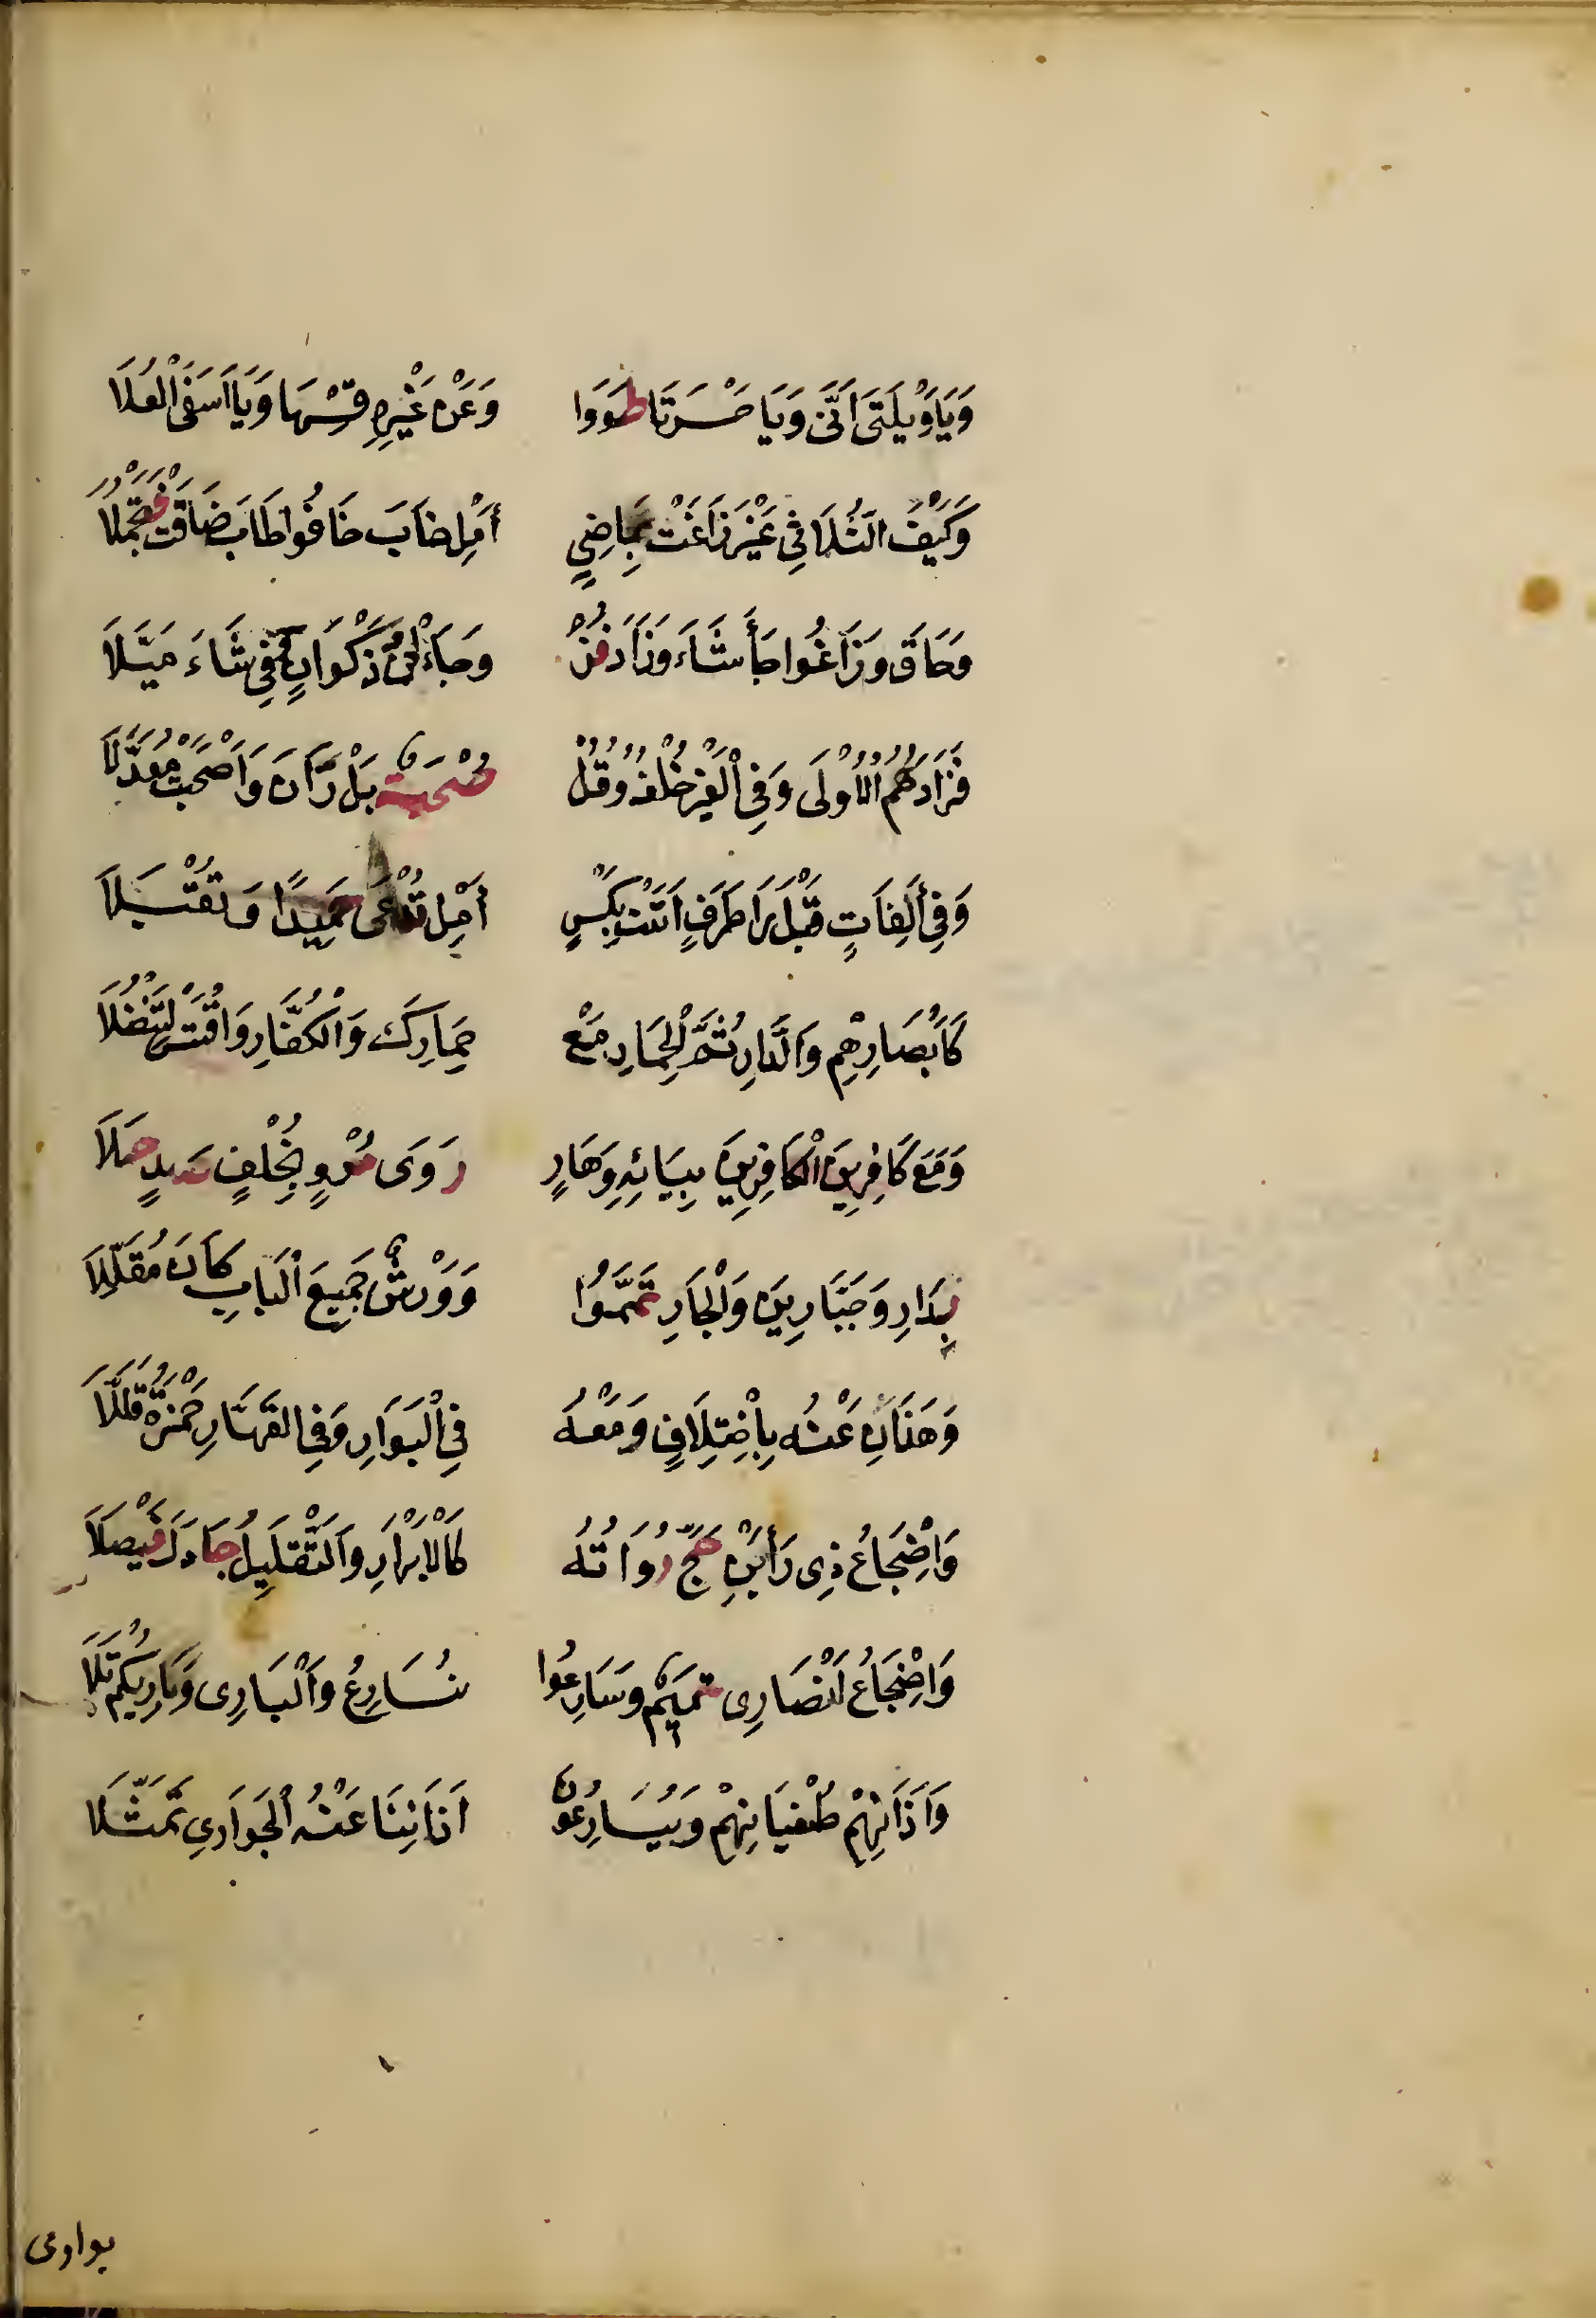 وَيَاوَيْلَتَى اَنَّى وَيَا حَسْرَتَا طَوَوَا وَعَنْ غَيْرِهِ قِسْهَا وَيَا اَسَفَى الْعُلَا
وَكَيْفَ الثُّلَاثِى غَيْرَ زَاغَتْ بِمَاضِيٍ أَمِلْ خَابَ خَافُوا طَابَ ضَاقَتْ فَتُجْمِلَا
وَحَاقَ وَزَاغُوا جَأَ شَاءَ وَزَادَ فُزْ وَجَاءَ ابْنُ ذَكْوَانٍ وَفِي شَاءَ مَيَّلَا
فَزَادَهُمُ الْاُولَى وَفِي الْغَيْرِ خُلْفُهُ وَقُلْ صُحْبَةٌ بَلْ رَانَ وَاصْحَبْ مُعَدَّلَا
وَفِي أَلِفَاتٍ قَبْلَ رَا طَرَفٍ اَتَتْ بِكَسْرٍ أَمِلْ تُدْعَى حَمِيدًا وَتُقْبَلَا
كَأَبْصَارِهِمْ وَالدَّارِ ثُمَّ الْحِمَارِ مَعْ حِمَارِكَ وَالْكُفَّارِ وَاقْتَسْ لِتَنْضُلَا
وَمَعَ كَافِرِينَ الْكَافِرِينَ بِيَائِهِ وَهَارٍ رَوَى مُرْوٍ بِخُلْفٍ صَدٍ حَلَا
بِدَارِ وَجَبَّارِينَ وَالْجَارِ تَمَّمُوا وَوَرْشٌ جَمِيعَ الْبَابِ كَانَ مُقَلِّلَا
وَهَذَانِ عَنْهُ بِاخْتِلَافٍ وَمَعْهُ فِي الْبَوَارِ وَفِي الْقَهَّارِ حَمْزَةُ قَلَّلَا
وَاِضْجَاعُ ذِى رَأَيْنِ حَجَّ رُوَاتُهُ كَالْاَبْرَارِ وَالتَّقْلِيلُ جَادَلَ فَيْصَلَا
وَاِضْجَاعُ اَنْصَارِى تَمِيمٌ وَسَارِعُوا نُسَارِعُ وَالْبَارِى وَبَارِيكُمْ تَلَا
وَاَذَانِهِمْ طُغْيَانِهِمْ وَيُسَارِعُونَ اَذَانِنَا عَنْهُ الْجَوَارِى تَمَثَّلَا
يوارى